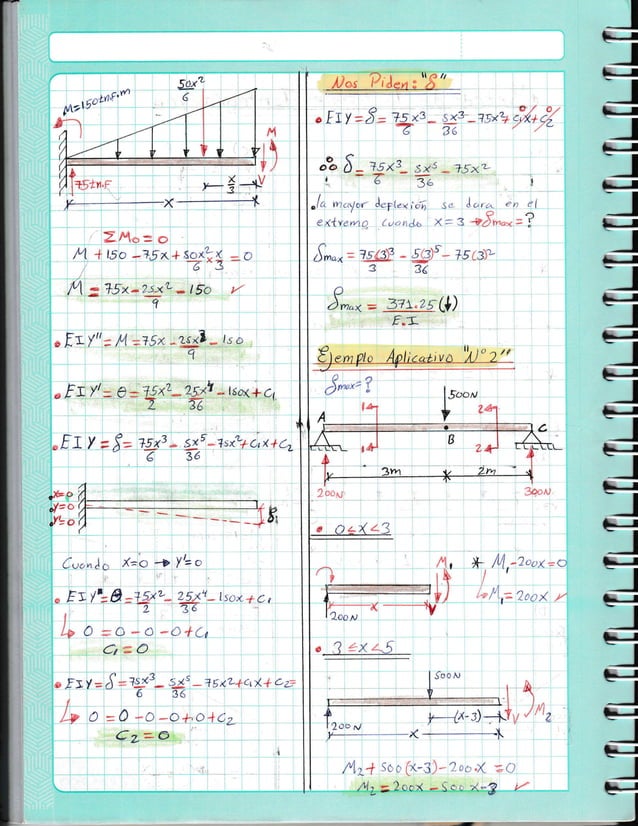 50x²/6
M=150tnf.m
M
V
75tn.F
x/3
x
ΣMo = 0
M + 150 - 75x + 50x²/6 * x/3 = 0
M = 75x - 25x²/9 - 150 ✓
• EIY'' = M = 75x - 25x³/9 - 150
• EIY' = θ = 75x²/2 - 25x⁴/36 - 150x + C₁
• EIY = δ = 75x³/6 - 5x⁵/36 - 75x² + C₁x + C₂
x=0
y=0
y'=0
δ
Cuando x=0 → Y'=0
• EIY' = θ = 75x²/2 - 25x⁴/36 - 150x + C₁
↳ 0 = 0 - 0 - 0 + C₁
C₁ = 0
• EIY = δ = 75x³/6 - 5x⁵/36 - 75x² + C₁x + C₂ =
↳ 0 = 0 - 0 - 0 + 0 + C₂
C₂ = 0
Nos Piden: "δ"
• EIY = δ = 75x³/6 - 5x³/36 - 75x² + C₁x + C₂
0 0
∴ δ = 75x³/6 - 5x⁵/36 - 75x²
• la mayor deflexión se dara en el
extremo, cuando x = 3 → δmax = ?
δmax = 75(3)³/3 - 5(3)⁵/36 - 75(3)²
δmax = 371.25/E.I (↓)
Ejemplo Aplicativo "N°2"
δmax = ?
500N
A
1
2
C
B
1
2
3m
2m
200N
300N
• 0≤x<3
M₁
* M₁ - 200x = 0
x
V
↳ M₁ = 200x ✓
200N
• 3≤x<5
500N
(x-3)
V
M₂
200N
x
M₂ + 500(x-3) - 200.x = 0
M₂ = 200x - 500x-3 ✓